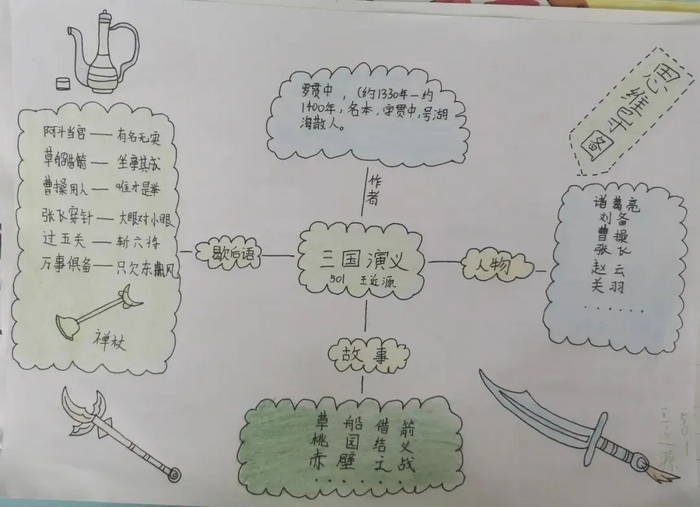 思维导图
罗贯中，(约1330年一约
1400年，名本，字贯中，号湖
海散人。
作者
三国演义
501 王近源
歇后语
阿斗当官——有名无实
草船借箭——坐享其成
曹操用人——唯才是举
张飞穿针——大眼对小眼
过五关——斩六将
万事俱备——只欠东风
禅杖
人物
诸葛亮
刘备
曹操
张飞
赵云
关羽
......
故事
草船借箭
桃园结义
赤壁之战